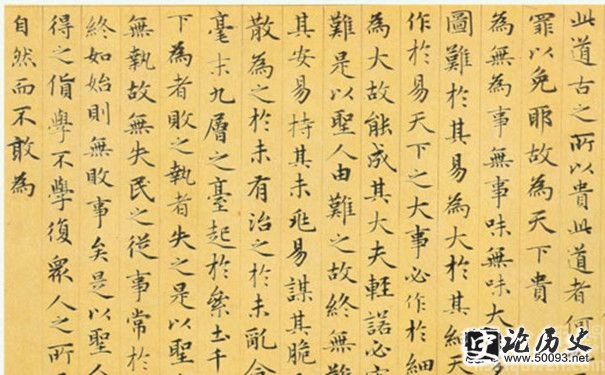 此道古之所以貴此道者何
罪以免耶故為天下貴
為無為事無事味無味大
圖難於其易為大於其細天
作於易天下之大事必作於細
為大故能成其大夫輕諾必
難是以聖人由難之故終無難
其安易持其未兆易謀其脆
散為之於未有治之於未亂
毫末九層之臺起於絫土千
下為者敗之執者失之是以聖
無執故無失民之從事常於
終如始則無敗事矣是以聖人
得之貨學不學復眾人之所
自然而不敢為
论历史
www.50093.net